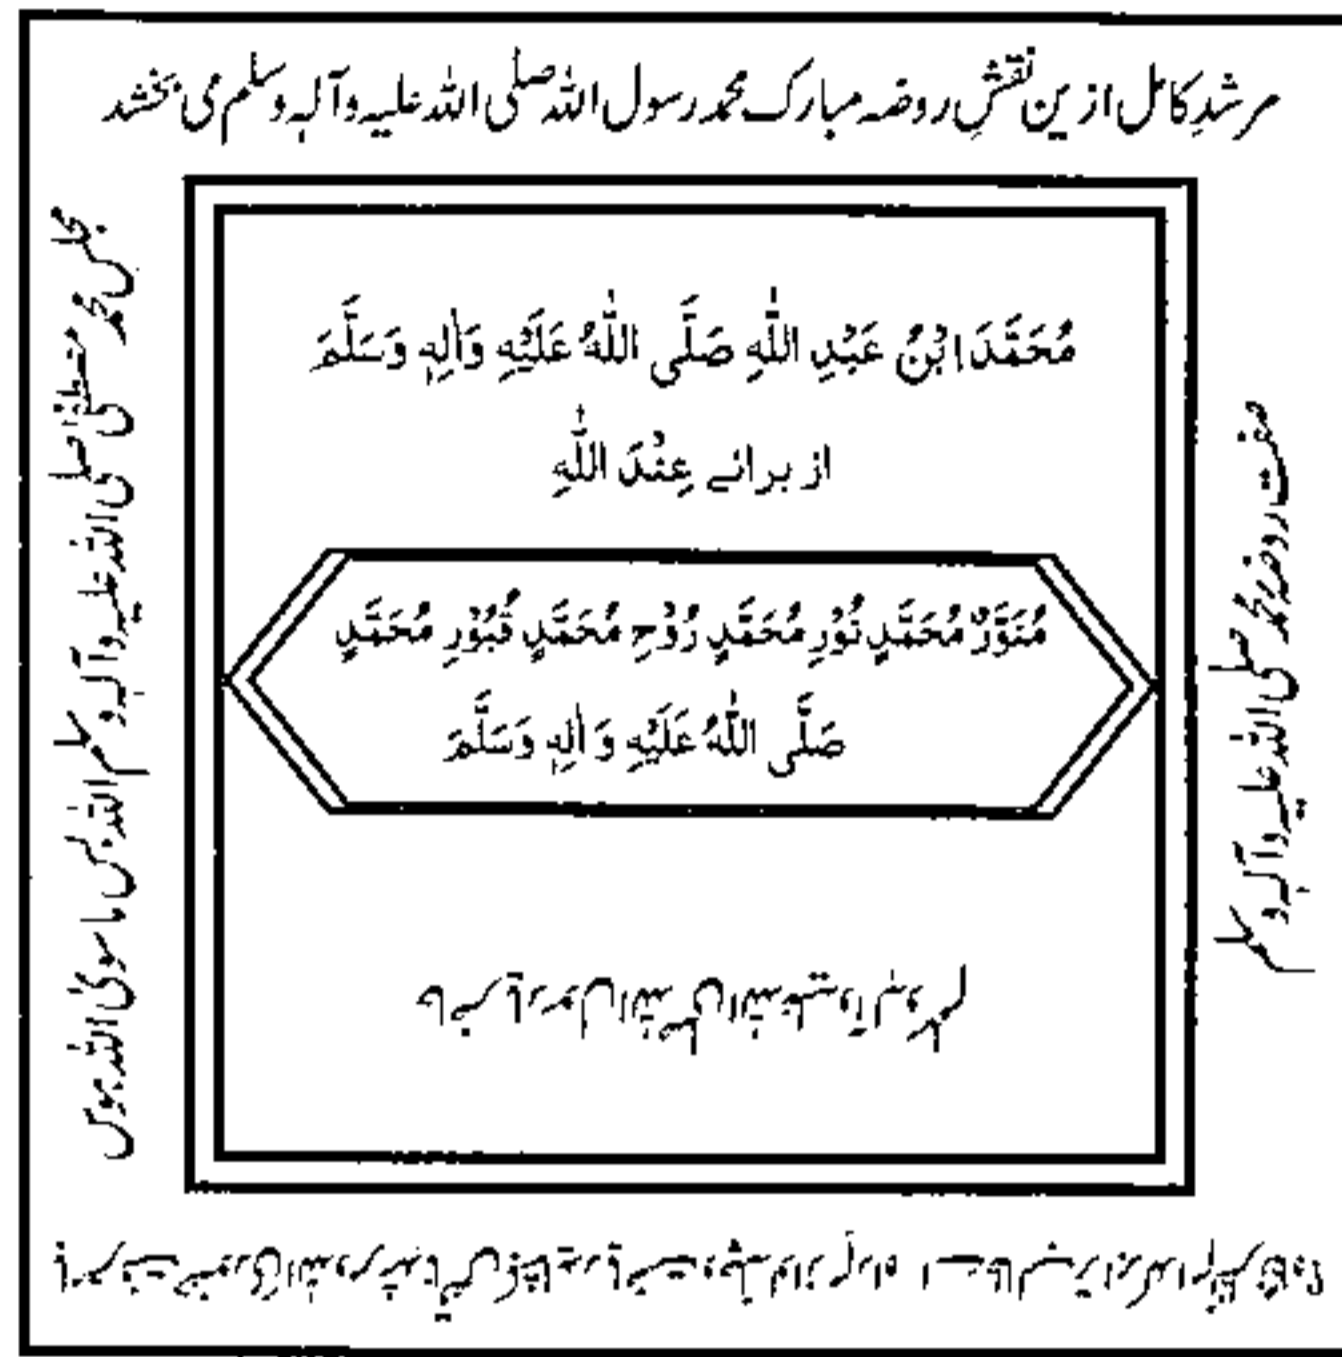 مرشدِ کامل ازین نقشِ روضہ مبارک محمد رسول اللہ صلی اللہ علیہ وآلہ وسلم می بخشد
صفت روضہ محمد صلی اللہ علیہ وآلہ وسلم
مُحَمَّدَ ابْنُ عَبْدِ اللّٰهِ صَلَّى اللّٰهُ عَلَيْهِ وَاٰلِهٖ وَسَلَّمَ
از برائے عِنْدَ اللّٰهِ
مُنَوَّرٌ مُحَمَّدٍ نُوْرِ مُحَمَّدٍ رُوْحِ مُحَمَّدٍ قُبُوْرِ مُحَمَّدٍ
صَلَّى اللّٰهُ عَلَيْهِ وَ اٰلِهٖ وَسَلَّمَ
یا رسول اللہ صلی اللہ علیہ وآلہ وسلم
مجلس محمد مصطفیٰ صلی اللہ علیہ وآلہ وسلم اللہ بس ماسویٰ اللہ ہوس